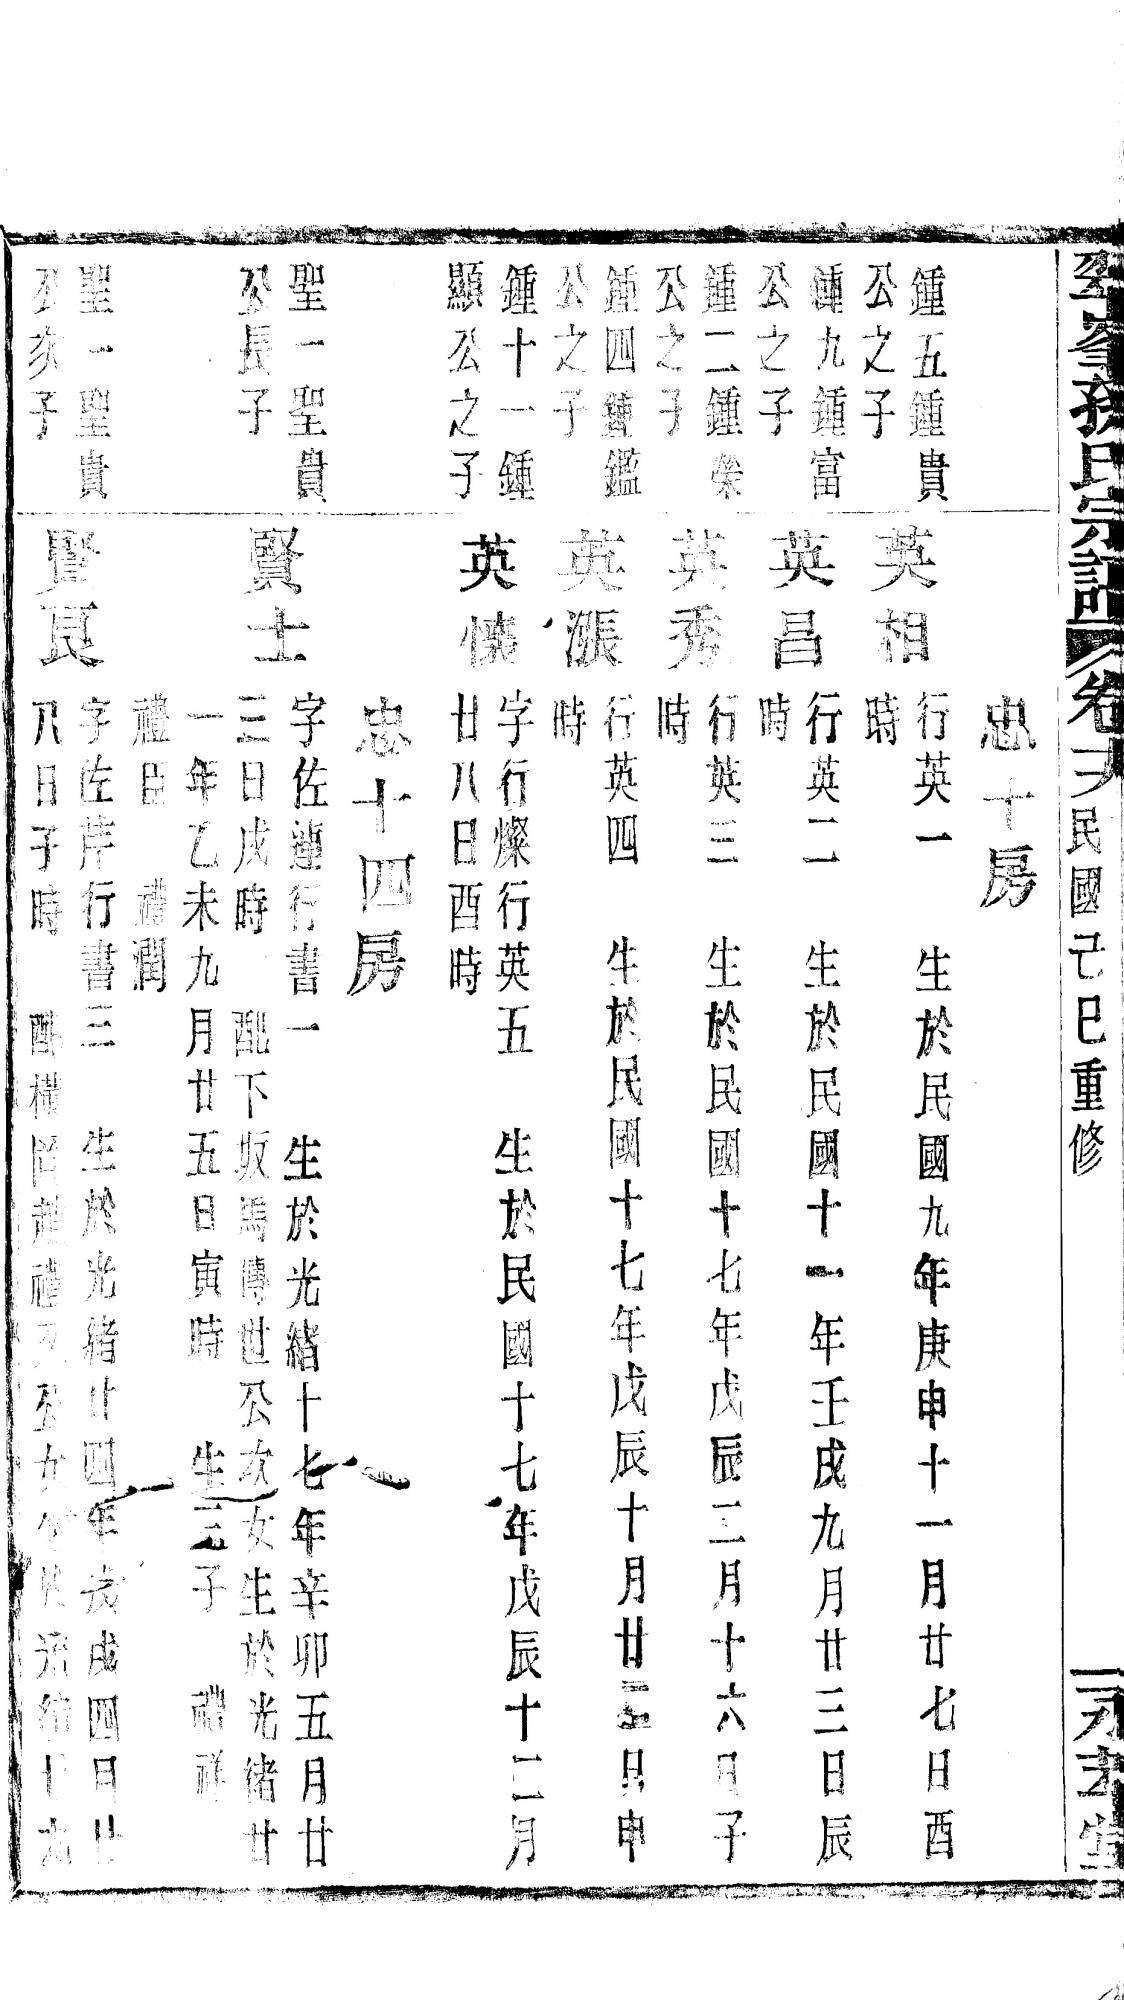 孫氏宗譜 卷 民國己巳重修
忠十房
鍾五鍾貴
公之子
英相
行英一 生於民國九年庚申十一月廿七日酉
時
鍾九鍾富
公之子
英昌
行英二 生於民國十一年壬戌九月廿三日辰
時
鍾二鍾榮
公之子
英秀
行英三 生於民國十七年戊辰二月十六日子
時
鍾四鍾鑑
公之子
英漲
行英四 生於民國十七年戊辰十月廿 日申
時
鍾十一鍾
顯公之子
英懷
字行燦行英五 生於民國十七年戊辰十二月
廿八日酉時
忠十四房
聖一聖貴
公長子
賢士
字佐蓮行書一 生於光緒十七年辛卯五月廿
三日戌時 配下坂馬傳世公次女生於光緒廿
一年乙未九月廿五日寅時 生三子 禮祥
禮臣 禮潤
聖一聖貴
公次子
賢良
字佐芹行書三 生於光緒廿四年戊戌四月廿
八日子時 配橫 趙禮 公女生於光緒廿九